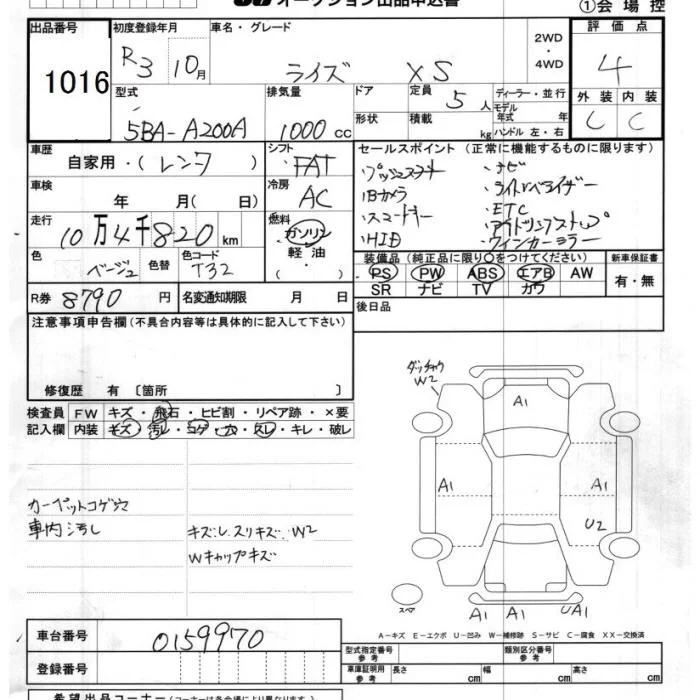 オークション出品申込書
①会場控
出品番号
1016
初度登録年月
R3 10月
車名・グレード
ライズ XS
2WD
・
4WD
評価点
4
外装 内装
C C
型式
5BA-A200A
排気量
1000 cc
ドア
形状
定員 5人
積載 kg
ディーラー・並行
モデル
年式 年
ハンドル 左・右
車歴
自家用・(レンタ)
シフト
FAT
車検
年 月( 日)
冷房
AC
走行
10万4千820km
燃料
ガソリン
軽油
( )
色
ベージュ
色替
色コード
T32
R券 8790円
名変通知期限 月 日
セールスポイント (正常に機能するものに限ります)
・プッシュスタート ・ナビ
・Bカメラ ・ライトレベライザー
・スマートキー ・ETC
・アイドリングストップ
・ウインカーミラー
装備品(純正品に限り○をつけてください)
PS PW ABS エアB AW
SR ナビ TV カワ
新車保証書
有・無
後日品
注意事項申告欄(不具合内容等は具体的に記入して下さい)
修復歴 有〔箇所 〕
検査員
記入欄
FW キズ・飛石・ヒビ割・リペア跡・×要
内装 キズ・汚レ・コゲ・穴・スレ・キレ・破レ
カーペットコゲ穴
車内汚し
キズU.スリキズ.W2
Wキャップキズ
W2
A1
A1
A1
U2
スペア
A1 A1 UA1
A-キズ E-エクボ U-凹み W-補修跡 S-サビ C-腐食 XX-交換済
車台番号
0159970
登録番号
型式指定番号
参考
類別区分番号
参考
車庫証明用
参考
長さ cm
幅 cm
高さ cm
希望出品コーナー